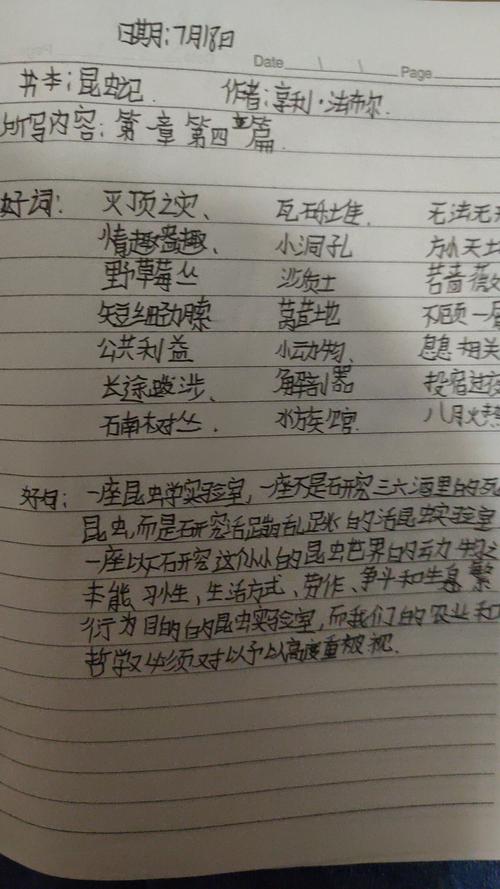 日期:7月18日
Date \ \ Page
书本:昆虫记. 作者:亨利·法布尔.
所写内容:第一章第四篇.
好词: 灭顶之灾、 瓦砾堆. 无法无天
情趣盎趣、 小洞孔 方小天地
野草莓丛 沙质土 若蔷薇
短细劲 莴苣地 不顾一
公共利益 小动物、 息息相关
长途跋涉、 解剖器 投宿过夜
石南树丛. 水族馆. 八月火热
好句: 一座昆虫学实验室,一座不是研究三六酒里的死
昆虫,而是研究活蹦乱跳的活昆虫实验室
一座以研究这个小小的昆虫世界的动物之
本能、习性,生活方式、劳作、争斗和生息繁
行为目的的昆虫实验室,而我们的农业和
哲学又必须对以予以高度重视.